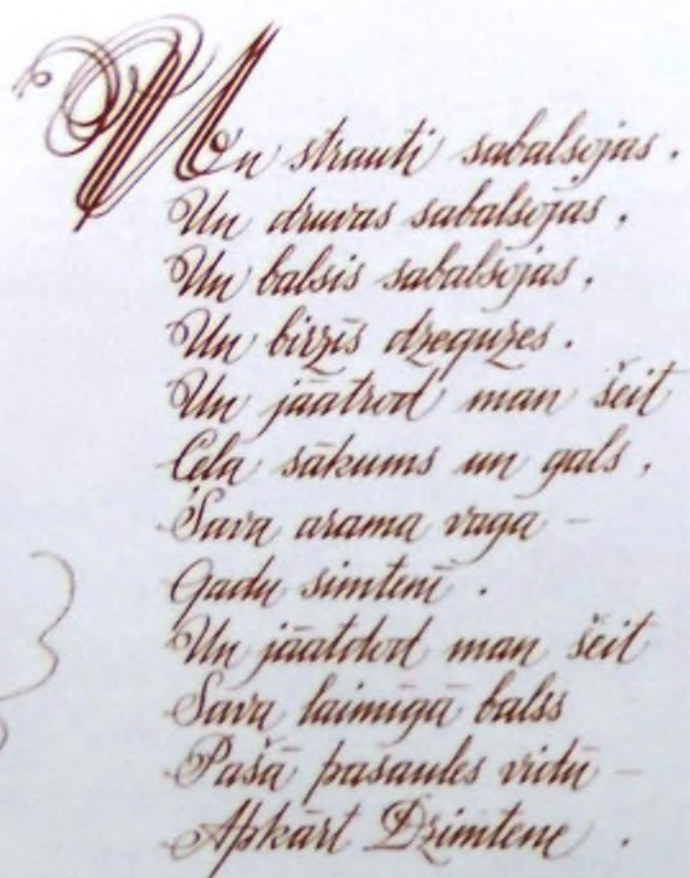 Un strauti sabalsojas.
Un druvas sabalsojas,
Un balsis sabalsojas,
Un birzīs dzeguzes.
Un jāatrod man šeit
Ceļa sākums un gals,
Sava arama vaga –
Gadu simtenī.
Un jāatdod man šeit
Sava laimīgā balss
Pašā pasaules vidū –
Apkārt Dzimtene.